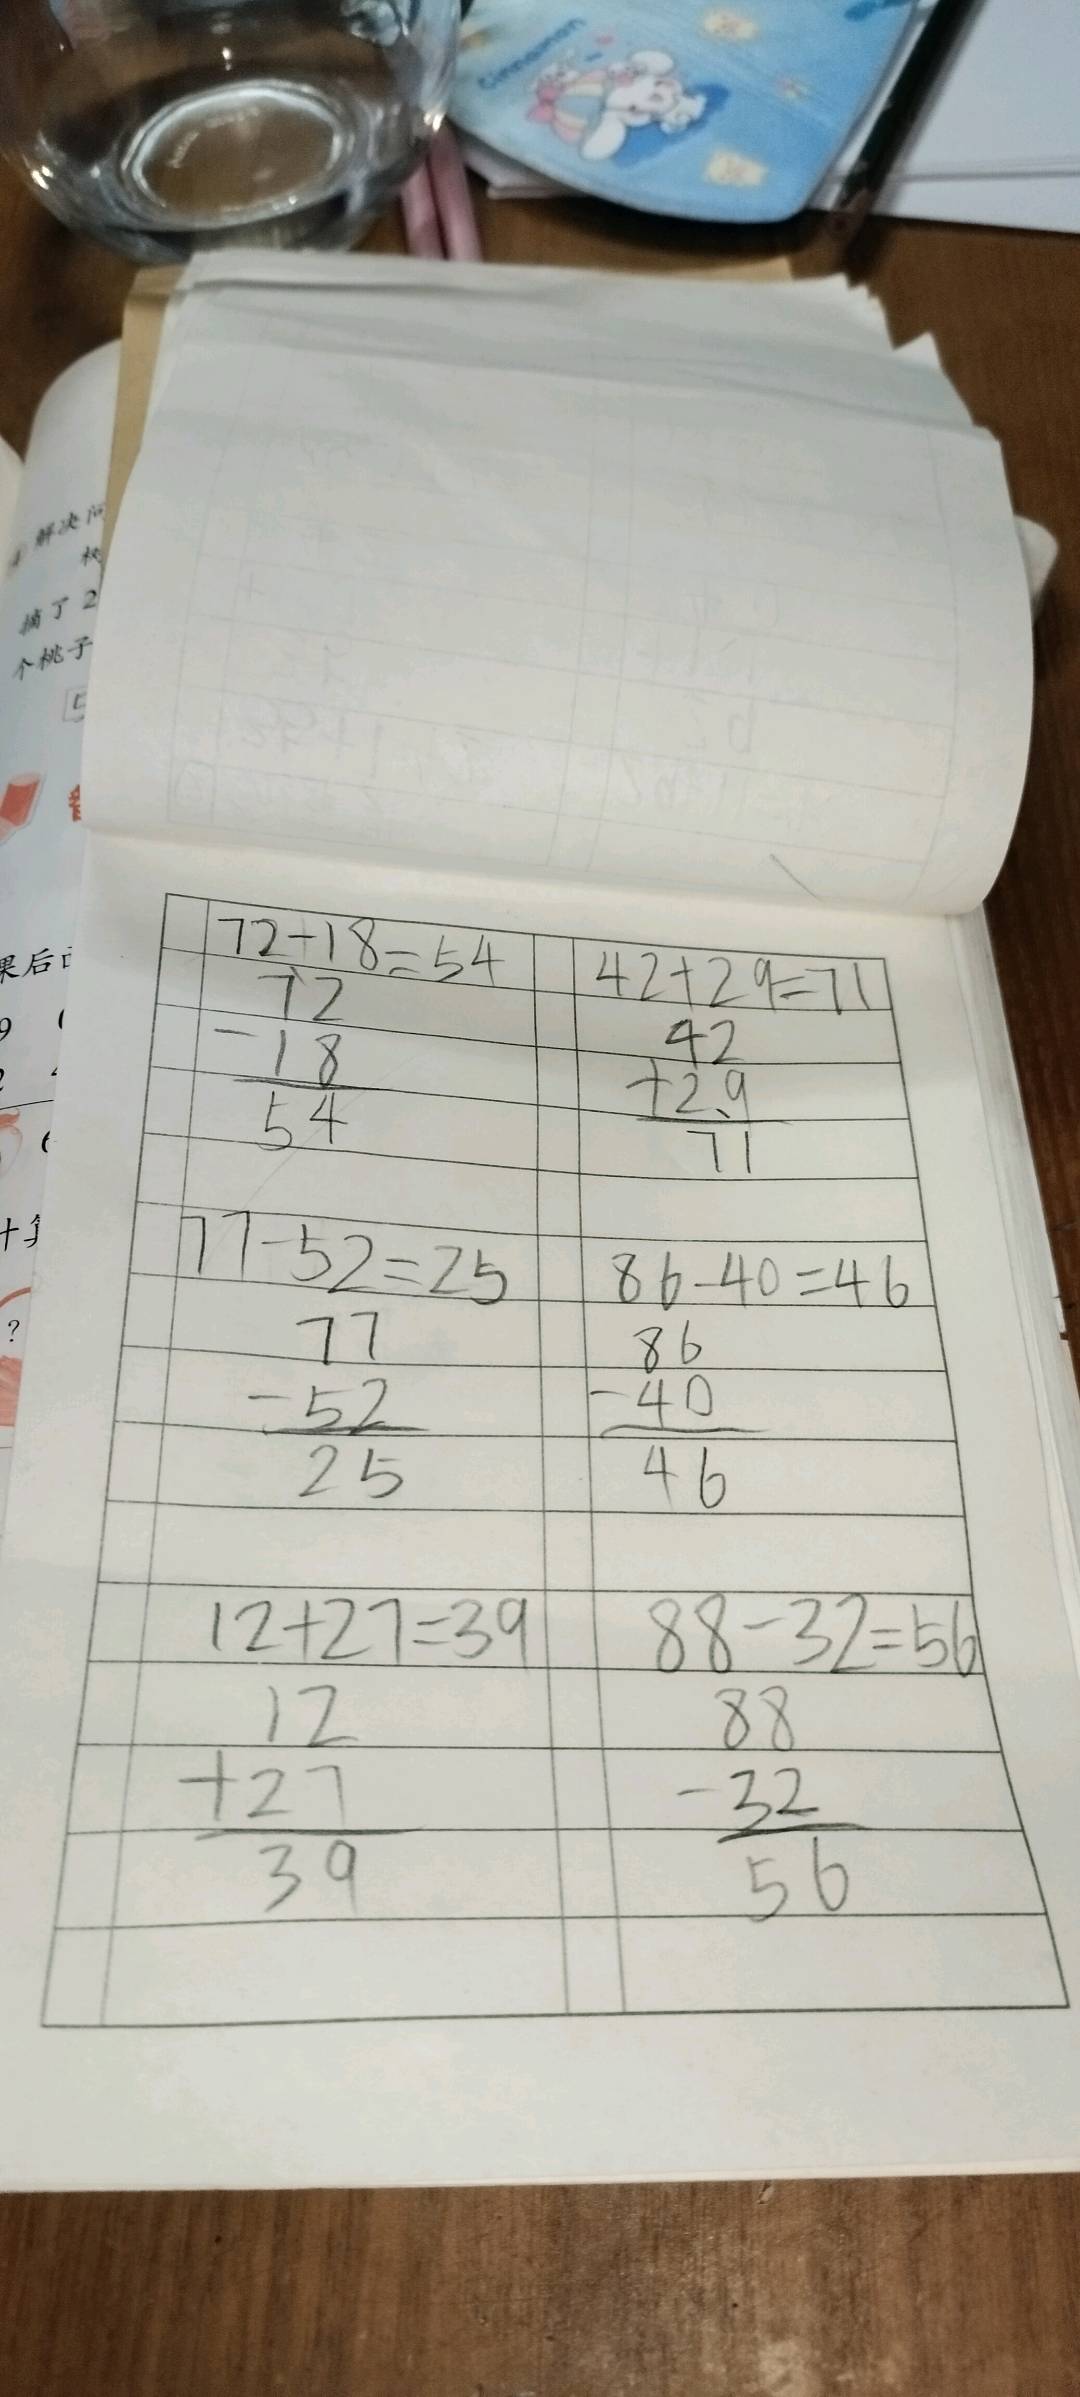 Cinnamon
解决问
摘了2
个桃子
5
课后
72-18=54
72
-18
54
42+29=71
42
+29
71
77-52=25
77
-52
25
86-40=46
86
-40
46
12+27=39
12
+27
39
88-32=56
88
-32
56
9
2
6
?